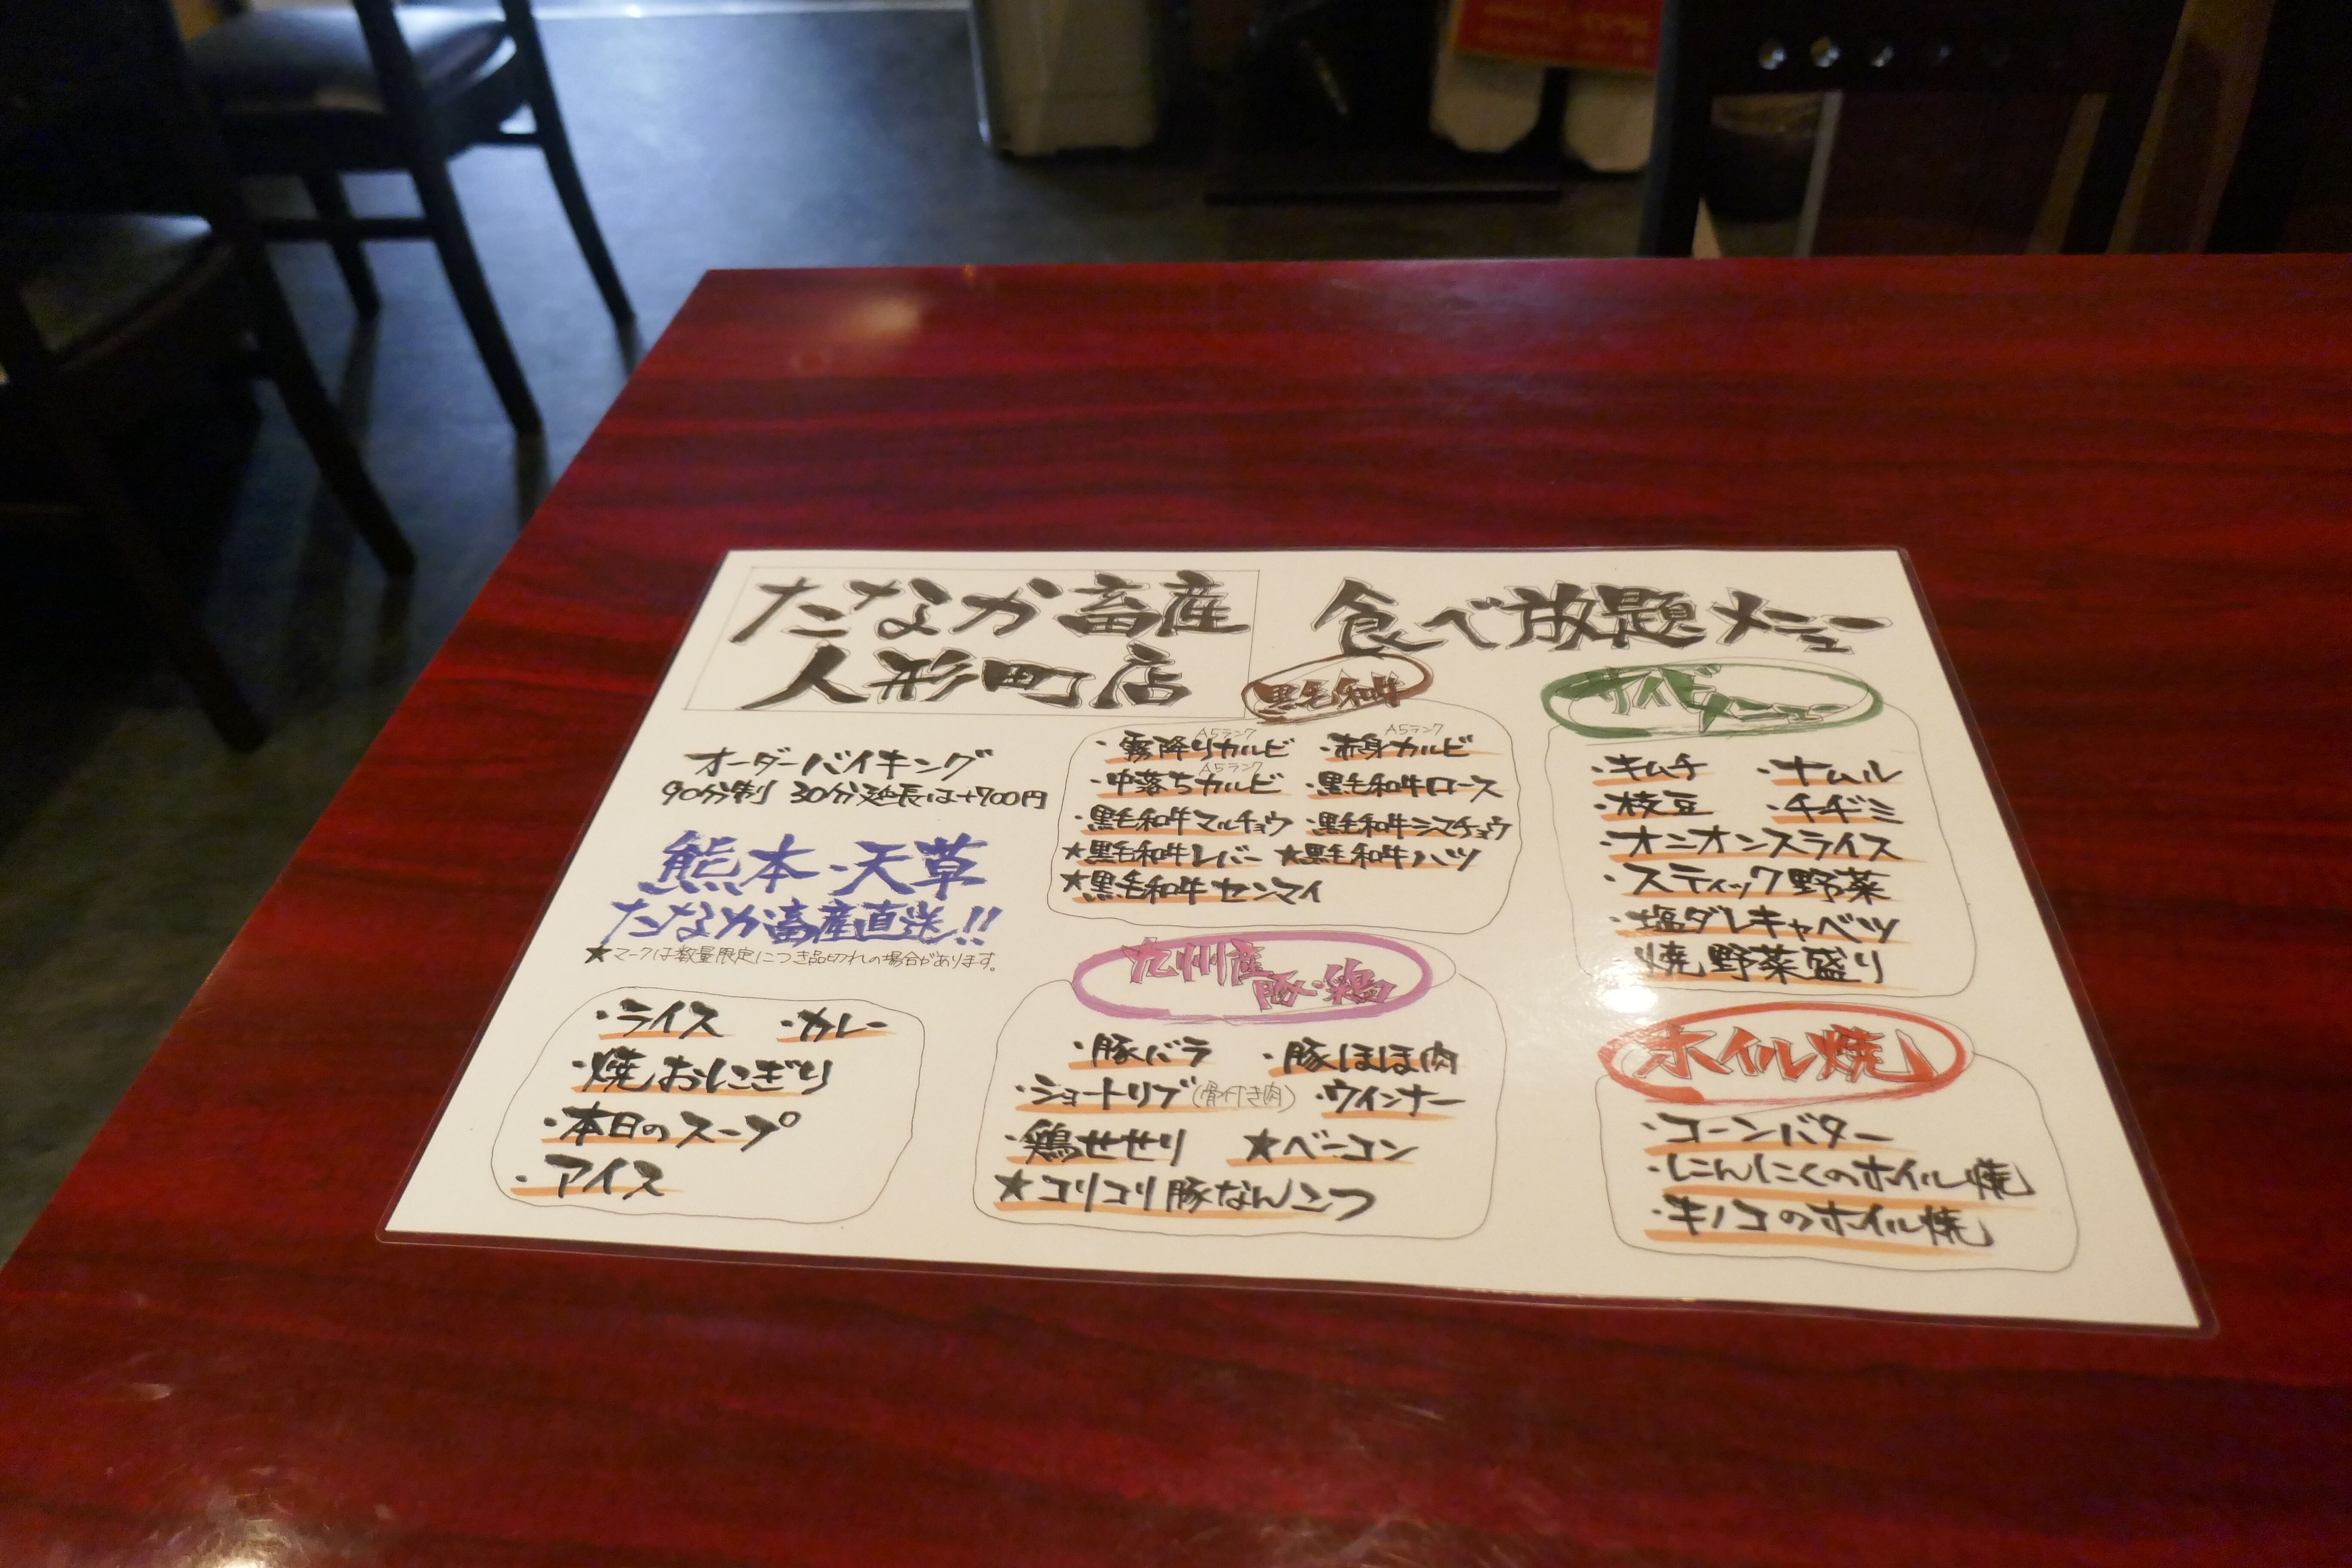 たなか畜産
人形町店
食べ放題メニュー
オーダーバイキング
90分制 30分延長は+700円
熊本・天草
たなか畜産直送!!
★マークは数量限定につき品切れの場合があります。
・ライス ・カレー
・焼おにぎり
・本日のスープ
・アイス
黒毛和牛
A5ランク A5ランク
・霧降りカルビ ・赤身カルビ
A5ランク
・中落ちカルビ ・黒毛和牛ロース
・黒毛和牛マルチョウ ・黒毛和牛シマチョウ
★黒毛和牛レバー ★黒毛和牛ハツ
★黒毛和牛センマイ
九州産
豚・鶏
・豚バラ ・豚ほほ肉
・ショートリブ(骨付き肉) ・ウインナー
・鶏せせり ★ベーコン
★コリコリ豚なんこつ
サイドメニュー
・キムチ ・ナムル
・枝豆 ・チヂミ
・オニオンスライス
・スティック野菜
・塩ダレキャベツ
焼野菜盛り
ホイル焼
・コーンバター
・にんにくのホイル焼
・キノコのホイル焼